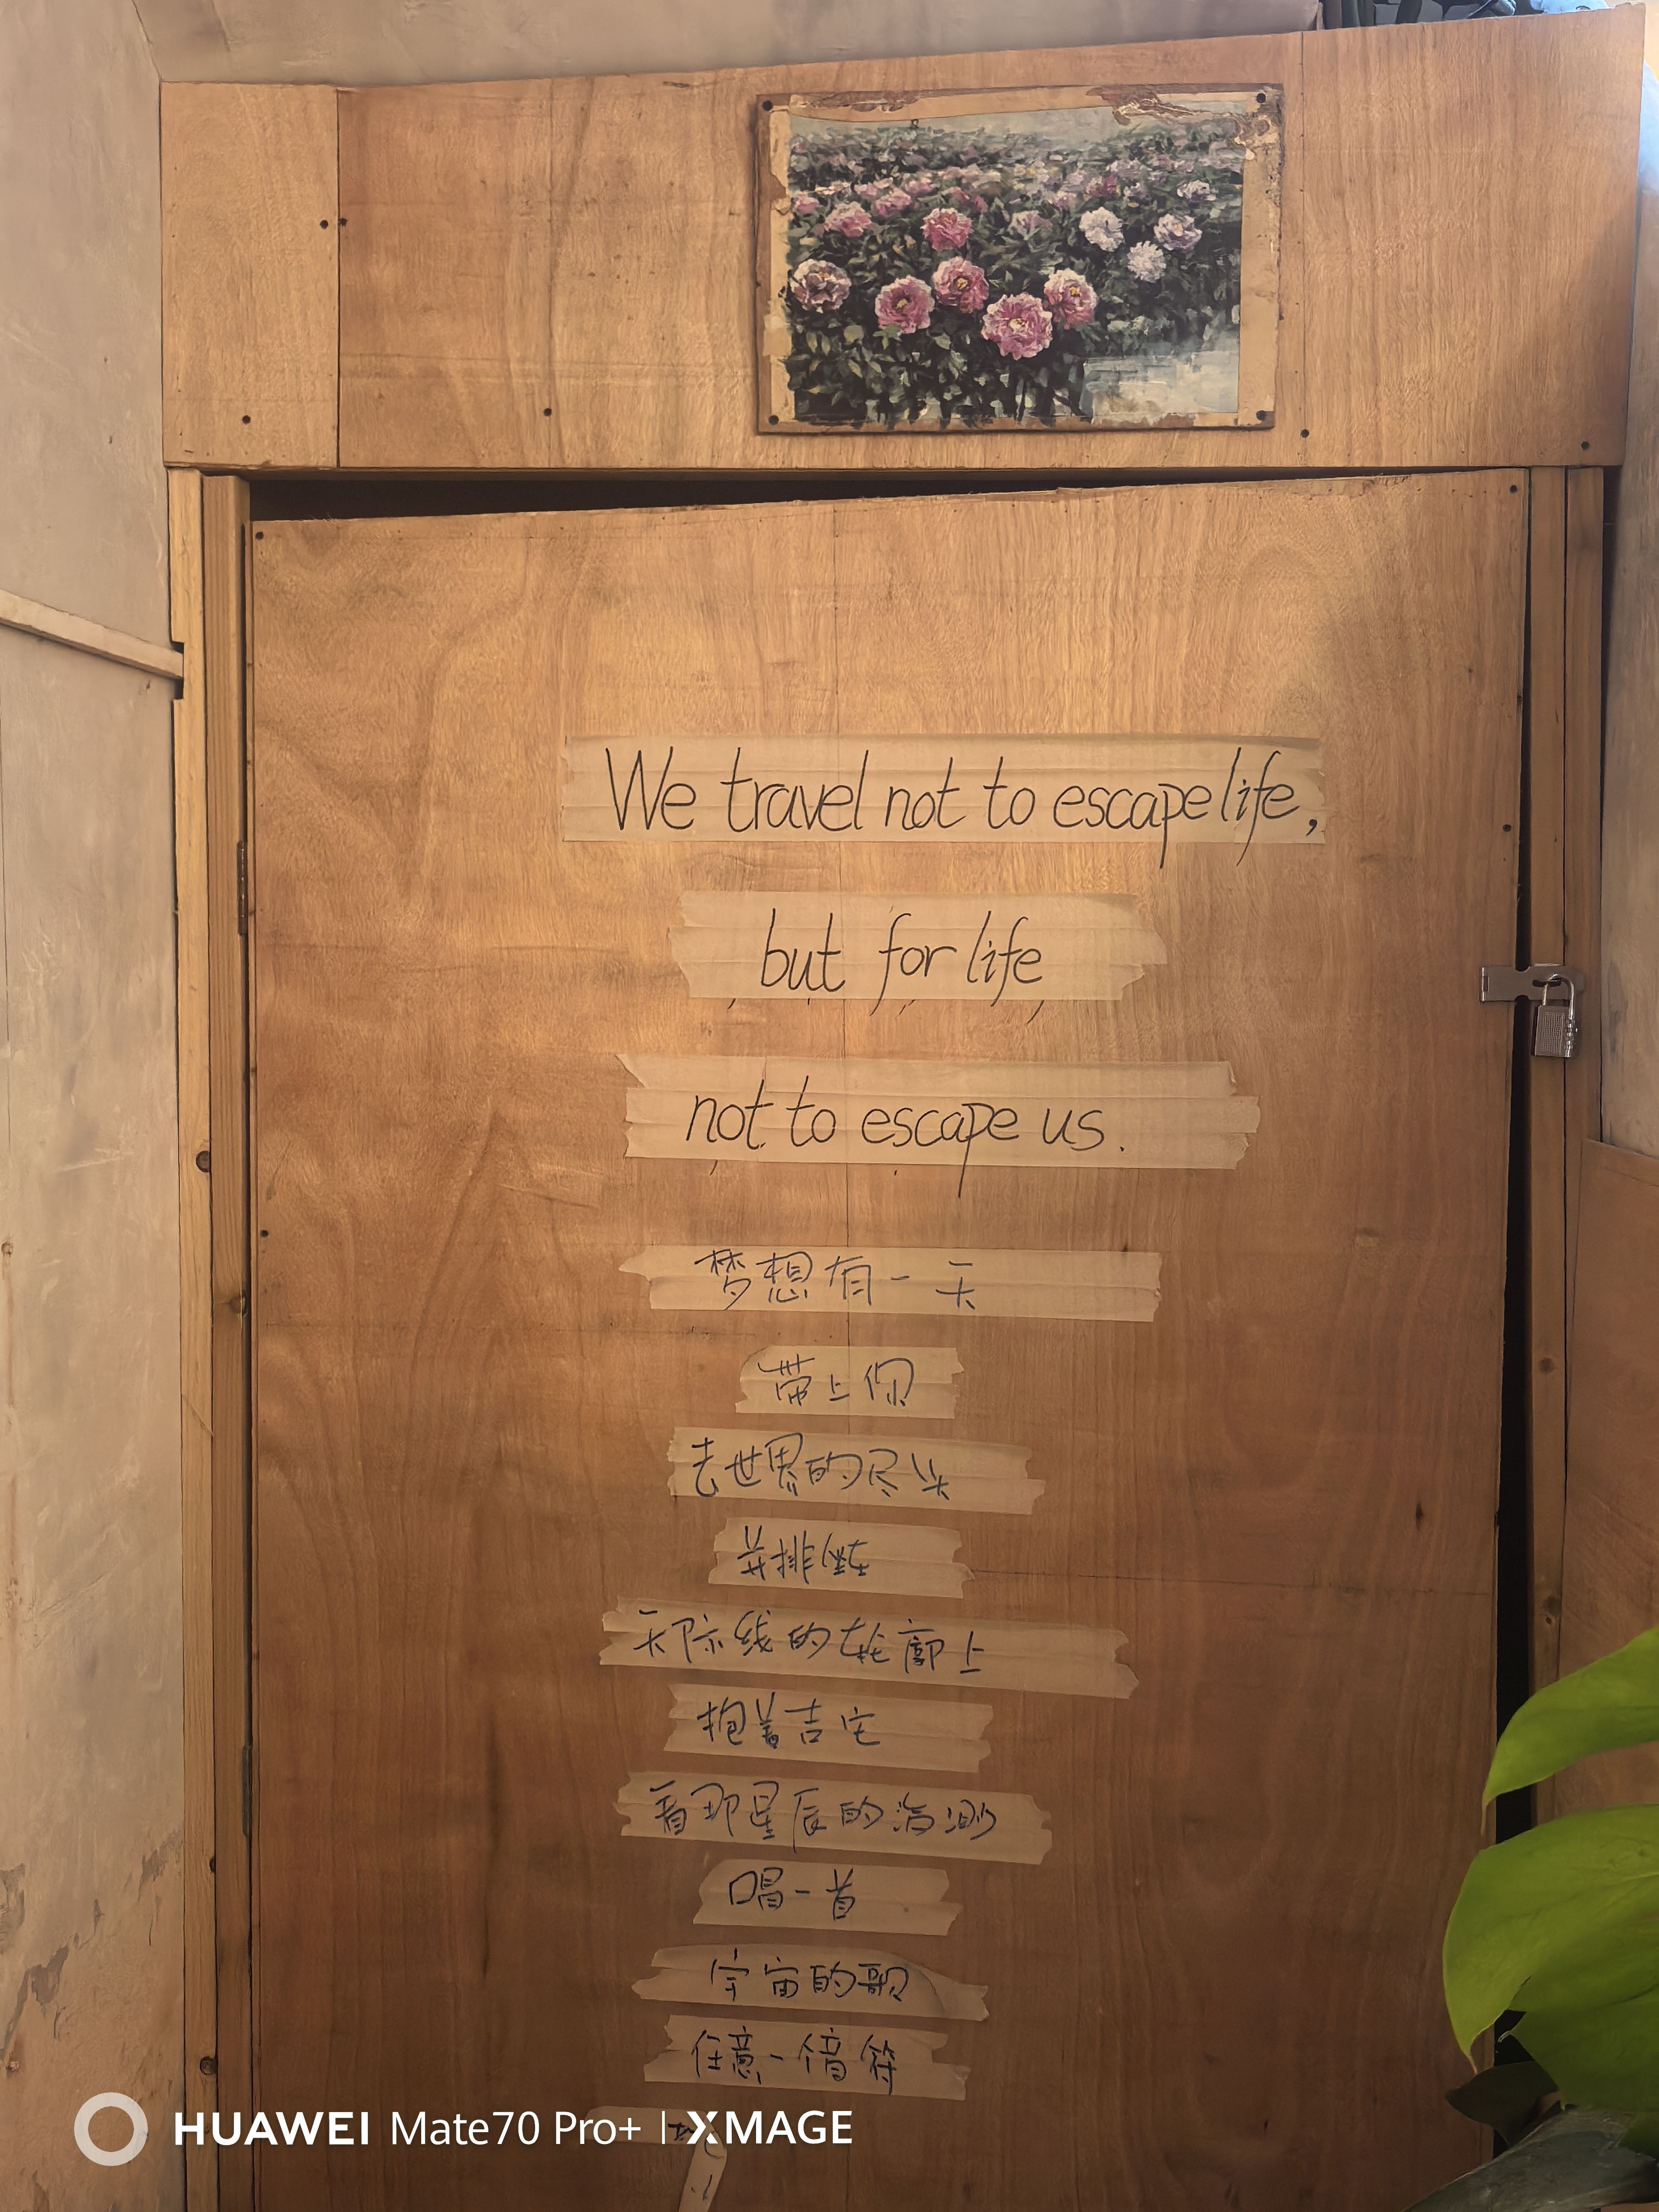 We travel not to escape life,
but for life
not to escape us.
梦想有一天
带上你
去世界的尽头
并排坐在
天际线的轮廓上
抱着吉它
看那星辰的
唱一首
宇宙的歌
任意一个音符
HUAWEI Mate70 Pro+ | XMAGE